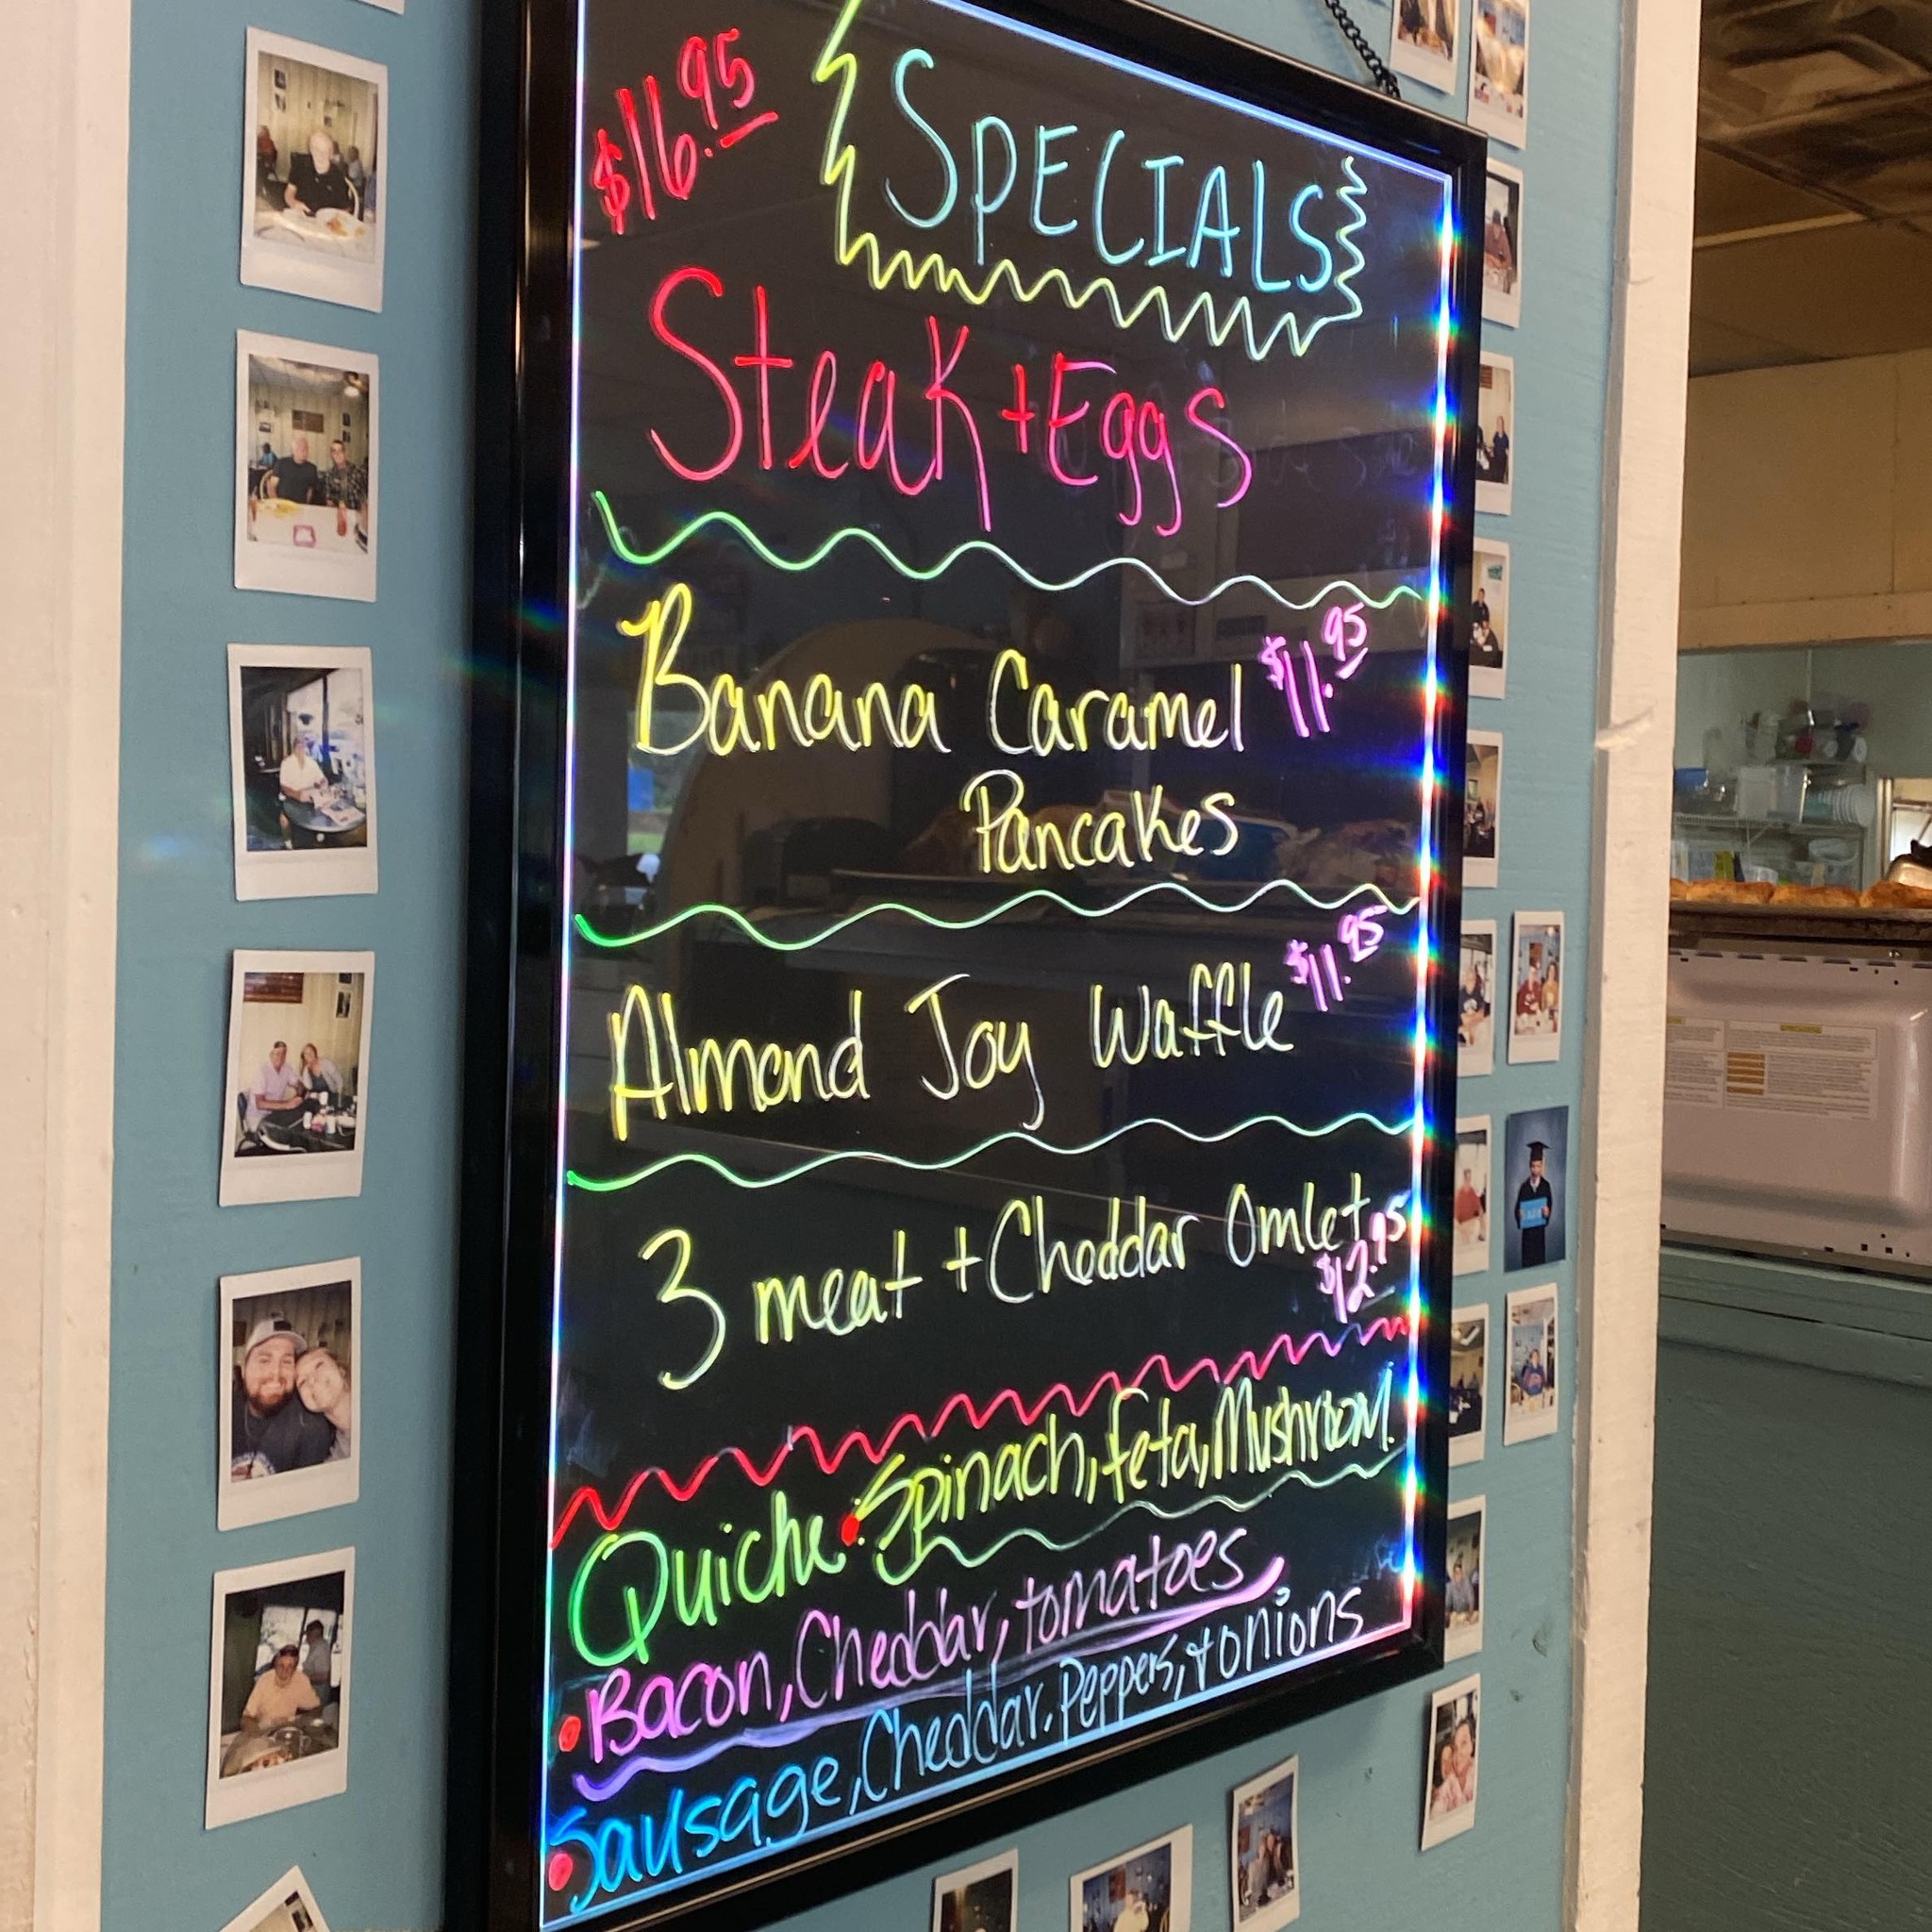 $16.95
SPECIALS
Steak + Eggs
Banana Caramel $11.95
Pancakes
Almond Joy Waffle $11.95
3 meat + Cheddar Omlet
$12.95
Quiche • Spinach, feta, Mushroom.
• Bacon, Cheddar, tomatoes
• Sausage, Cheddar, Peppers, + onions